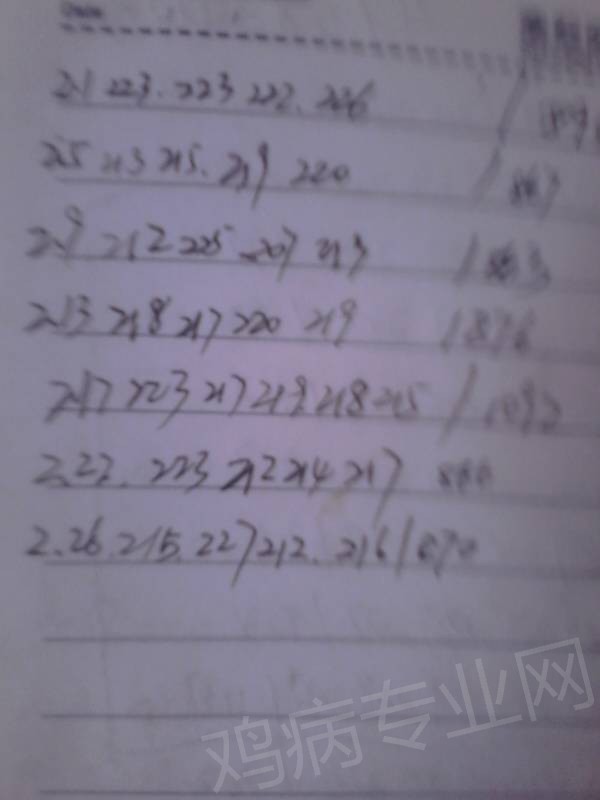 2.1 223. 223 222. 226
2.5 213 215. 219 220 / 867
2.9 212 225 207 219 / 863
2.13 218 217 220 219 / 874
2.17 223 217 219 218 215 / 1092
2.22. 223 212 214 217
2.26. 215. 227 212. 216 / 870
鸡病专业网